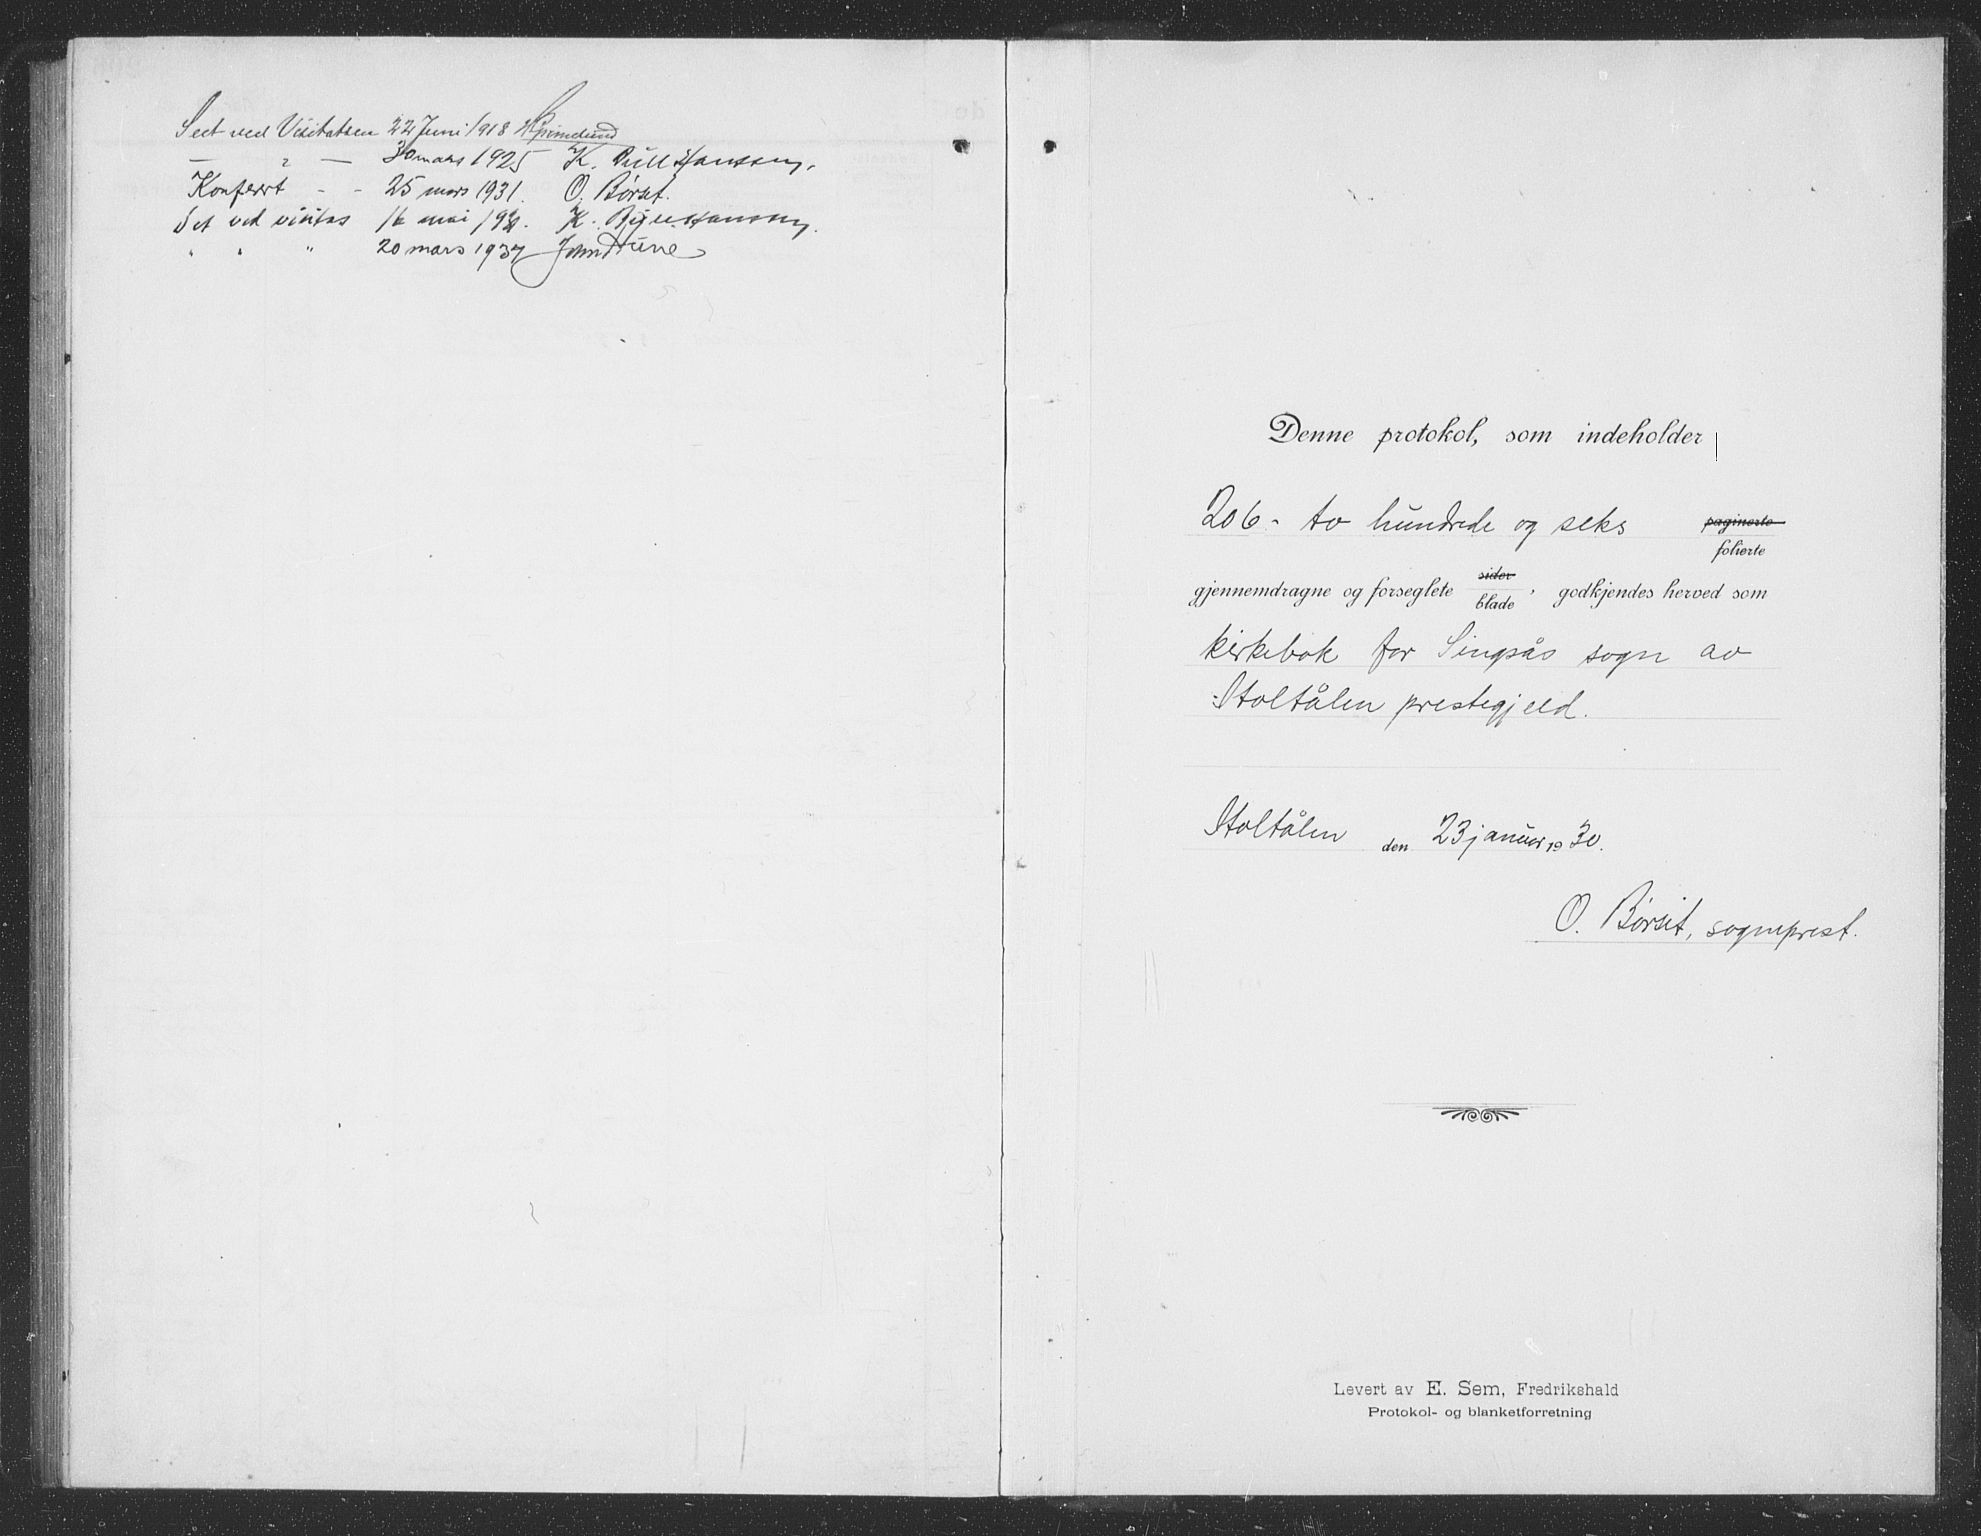 Seet ved Visitatsen 22 Juni 1918
— " — 30 mars 1925 K.
Konferert - - 25 mars 1931. O. Børset.
Set ved visitas 16 mai K.
" " " 20 mars 1937
Denne protokol, som indeholder
206 - to hundrede og seks paginerte
folierte
gjennemdragne og forseglete sider
blade, godkjendes herved som
kirkebok for Singsås sogn av
Holtålen prestegjeld.
Holtålen den 23 januar 1930.
O. Børset, sogneprest.
Levert av E. Sem, Fredrikshald
Protokol- og blanketforretning